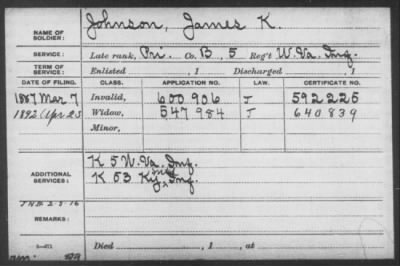 NAME OF SOLDIER: Johnson, James K.
SERVICE: Late rank, Pri. Co. B, 5 Reg't W. Va. Inf.
TERM OF SERVICE: Enlisted , 1 Discharged , 1
DATE OF FILING. CLASS. APPLICATION NO. LAW. CERTIFICATE NO.
1887 Mar 7 Invalid, 600 906 J 592 225
1892 Apr 25 Widow, 547 984 J 640 839
Minor,
ADDITIONAL SERVICES: K 5 W. Va. Inf.
K 53 Ky. Mtd Inf.
REMARKS:
Died , 1 , at